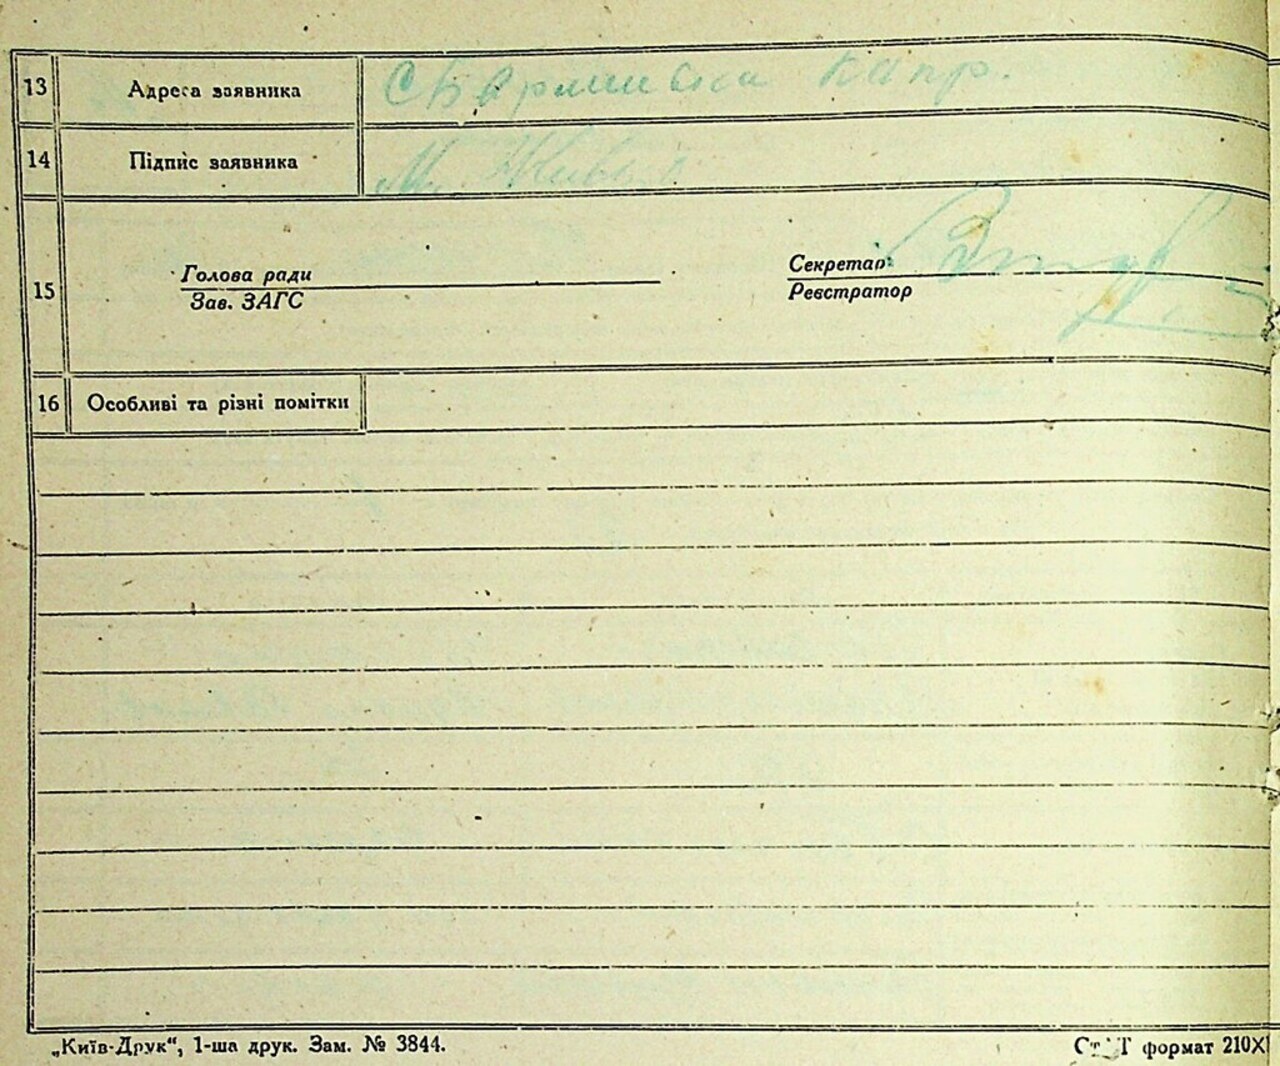 13 Адреса заявника
14 Підпис заявника
15 Голова ради Секретар
Зав. ЗАГС Реєстратор
16 Особливі та різні помітки
„Київ-Друк“, 1-ша друк. Зам. № 3844. формат 210X